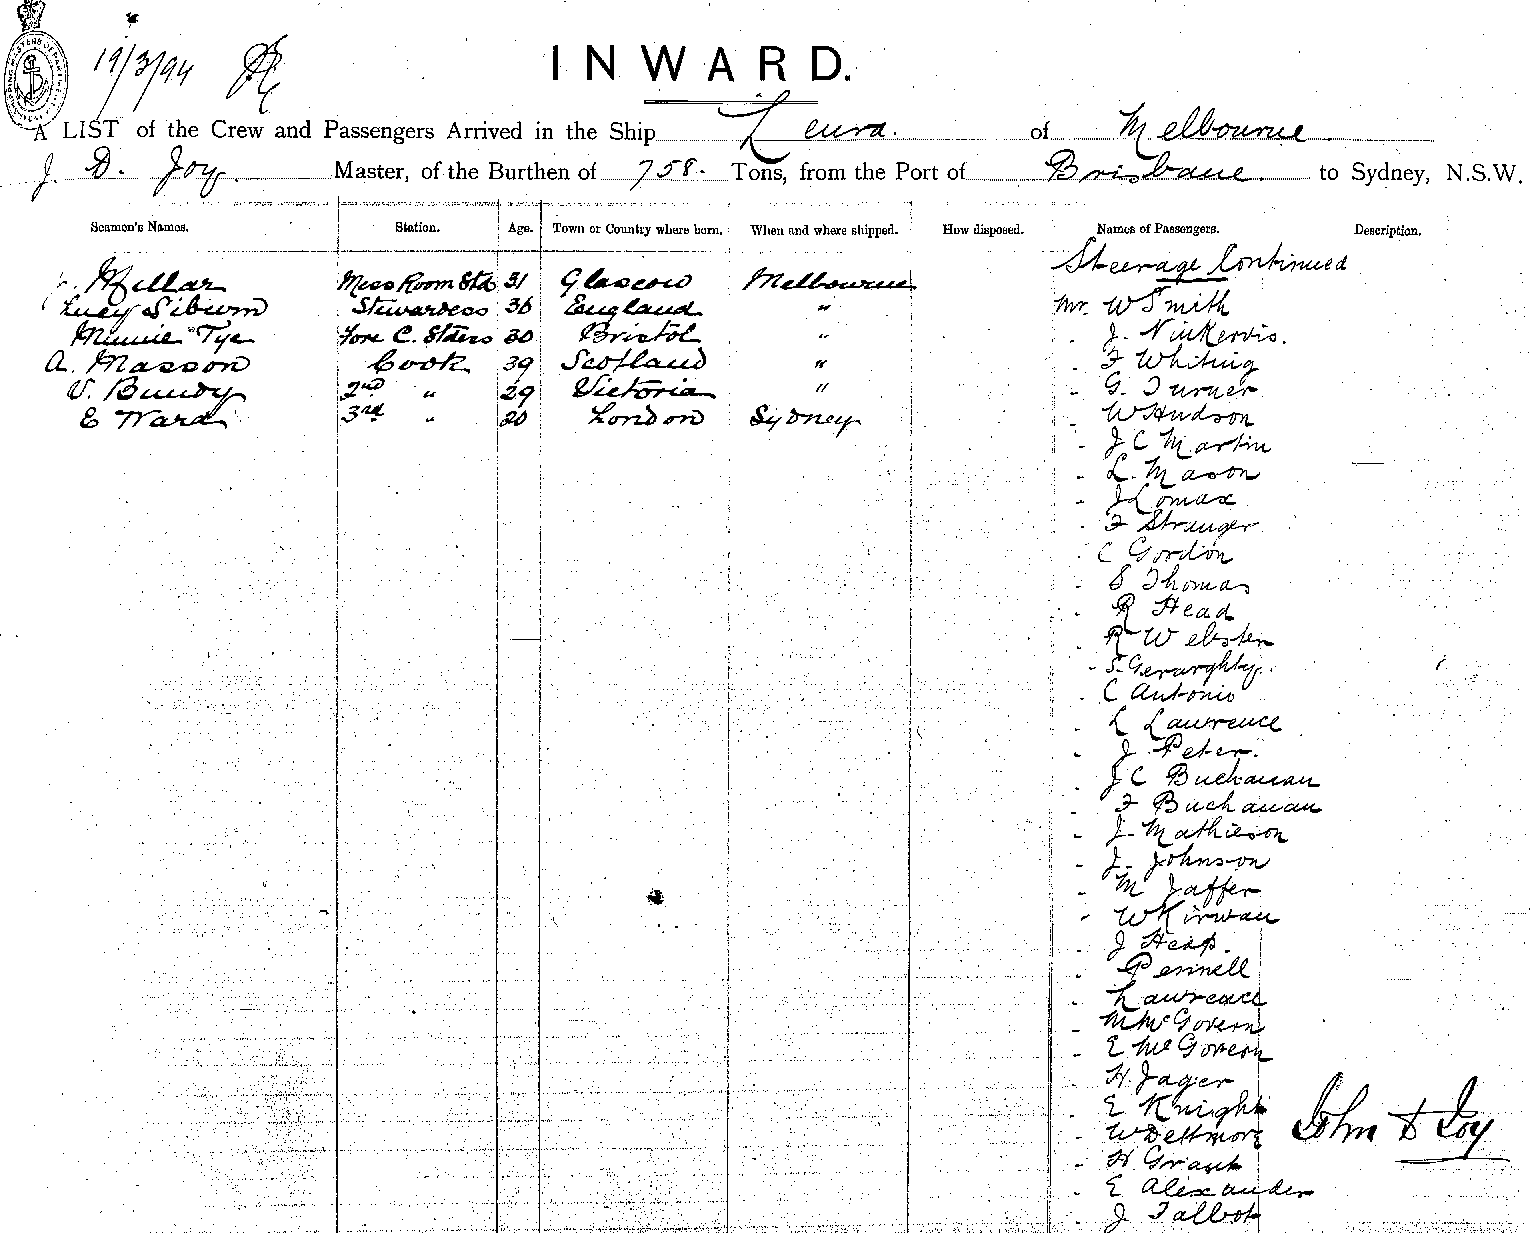 19/3/94
INWARD.
A LIST of the Crew and Passengers Arrived in the Ship Leura. of Melbourne
J. D. Joy Master, of the Burthen of 758. Tons, from the Port of Brisbane to Sydney, N.S.W.
Seamen's Names. Station. Age. Town or Country where born. When and where shipped. How disposed. Names of Passengers. Description.
Steerage Continued
Millar Mess Room Std 31 Glascow Melbourne
Lucy Siburn Stewardess 36 England "
Minnie Tye Fore C. Stdess 30 Bristol "
A. Masson Cook 39 Scotland "
V. Bundy 2nd " 29 Victoria "
E Ward 3rd " 20 London Sydney
Mr. W Smith
- J. Ninkervis.
- F Whiting
- G. Turner
- W Hudson
- J C Martin
- L. Mason
- J Lomax
- F Stranger
- C Gordon
- S Thomas
- R Head
- R Webster
- S. Geraughty.
- C Antonio
- L Lawrence
- J. Peter.
- J C Buchanan
- F Buchanan
- J. Mathieson
- J. Johnson
- M Jaffer
- W Kirwan
- J Heap.
- Pennell
- Lawrence
- M McGovern
- E McGovern
- H. Jager
- E Knight
- W Dettmore
- H Grant
- E Alexander
- J Talbot
John D Joy